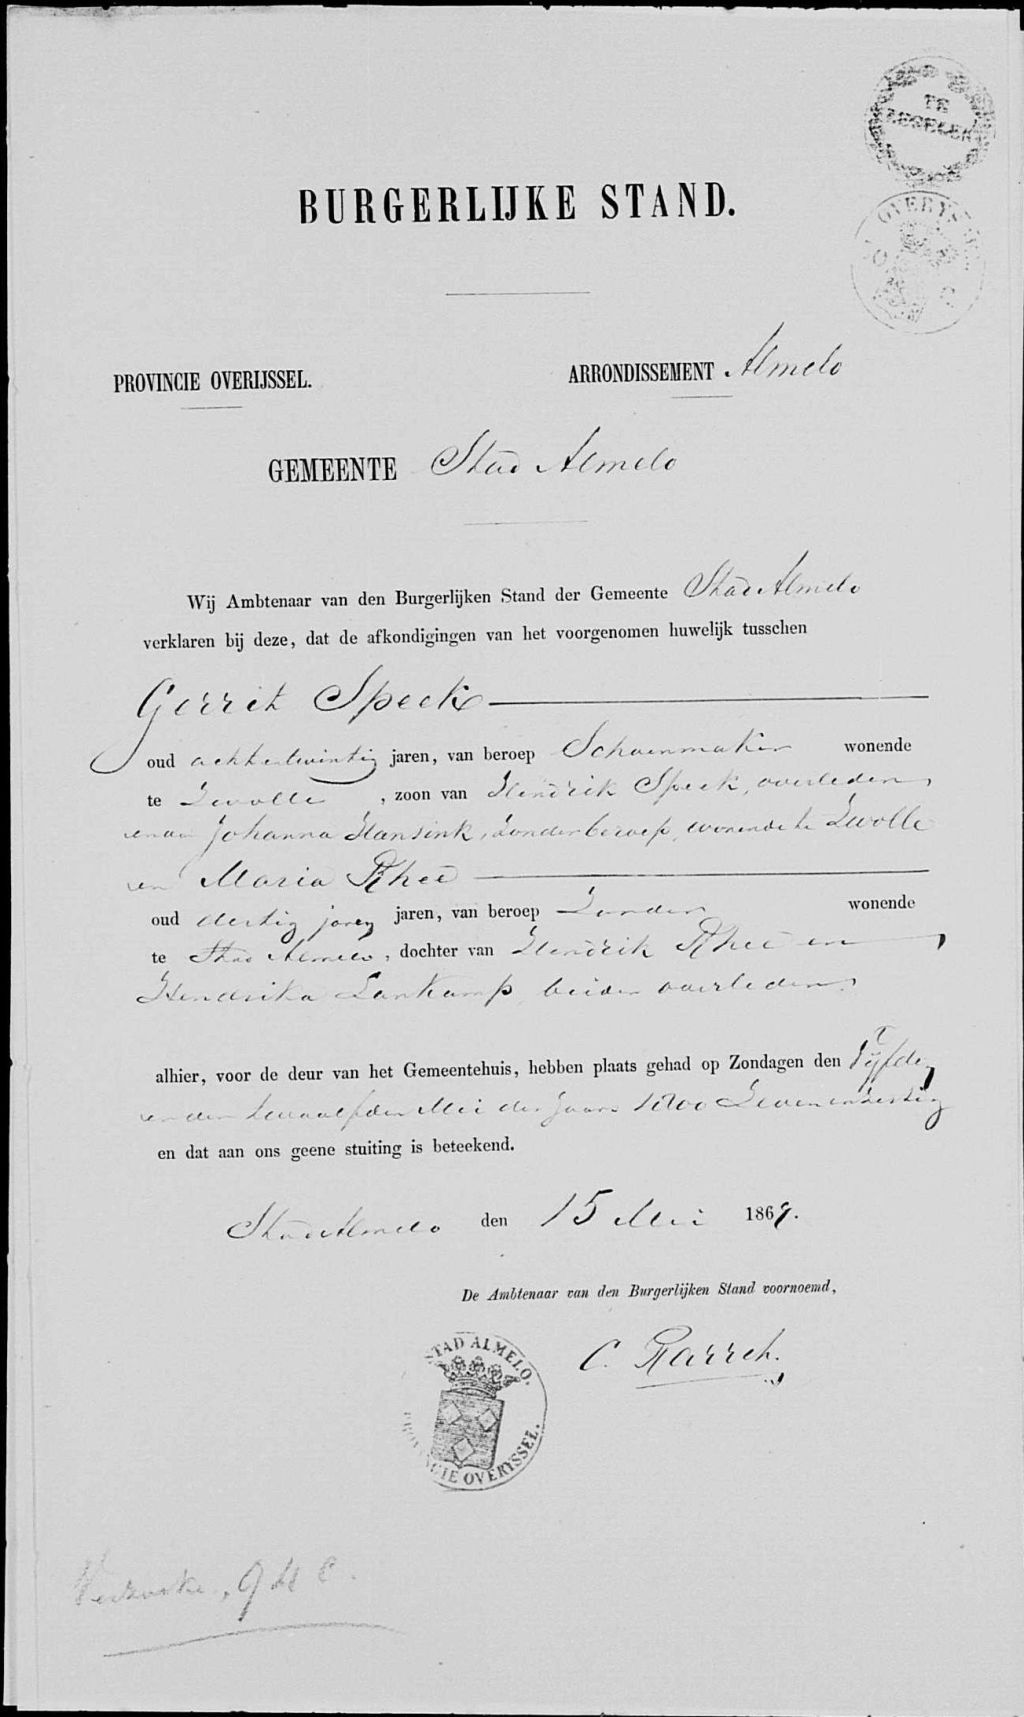 TE
ZEGELEN
OVERYSSEL
BURGERLIJKE STAND.
PROVINCIE OVERIJSSEL.
ARRONDISSEMENT Almelo
GEMEENTE Stad Almelo
Wij Ambtenaar van den Burgerlijken Stand der Gemeente Stad Almelo
verklaren bij deze, dat de afkondigingen van het voorgenomen huwelijk tusschen
Gerrit Speek
oud achtentwintig jaren, van beroep Schoenmaker wonende
te Zwolle, zoon van Hendrik Speek, overleden,
en van Johanna Hansink, zonder beroep, wonende te Zwolle
en Maria Rhee
oud dertig jaren jaren, van beroep Zonder wonende
te Stad Almelo, dochter van Hendrik Rhee en
Hendrika Lankamp beiden overleden,
alhier, voor de deur van het Gemeentehuis, hebben plaats gehad op Zondagen den Vijfden
en den twaalfden Mei des Jaars 1800 Zevenenzestig
en dat aan ons geene stuiting is beteekend.
Stad Almelo den 15 Mei 1867.
De Ambtenaar van den Burgerlijken Stand voornoemd,
C.
STAD ALMELO.
PROVINCIE OVERYSSEL.